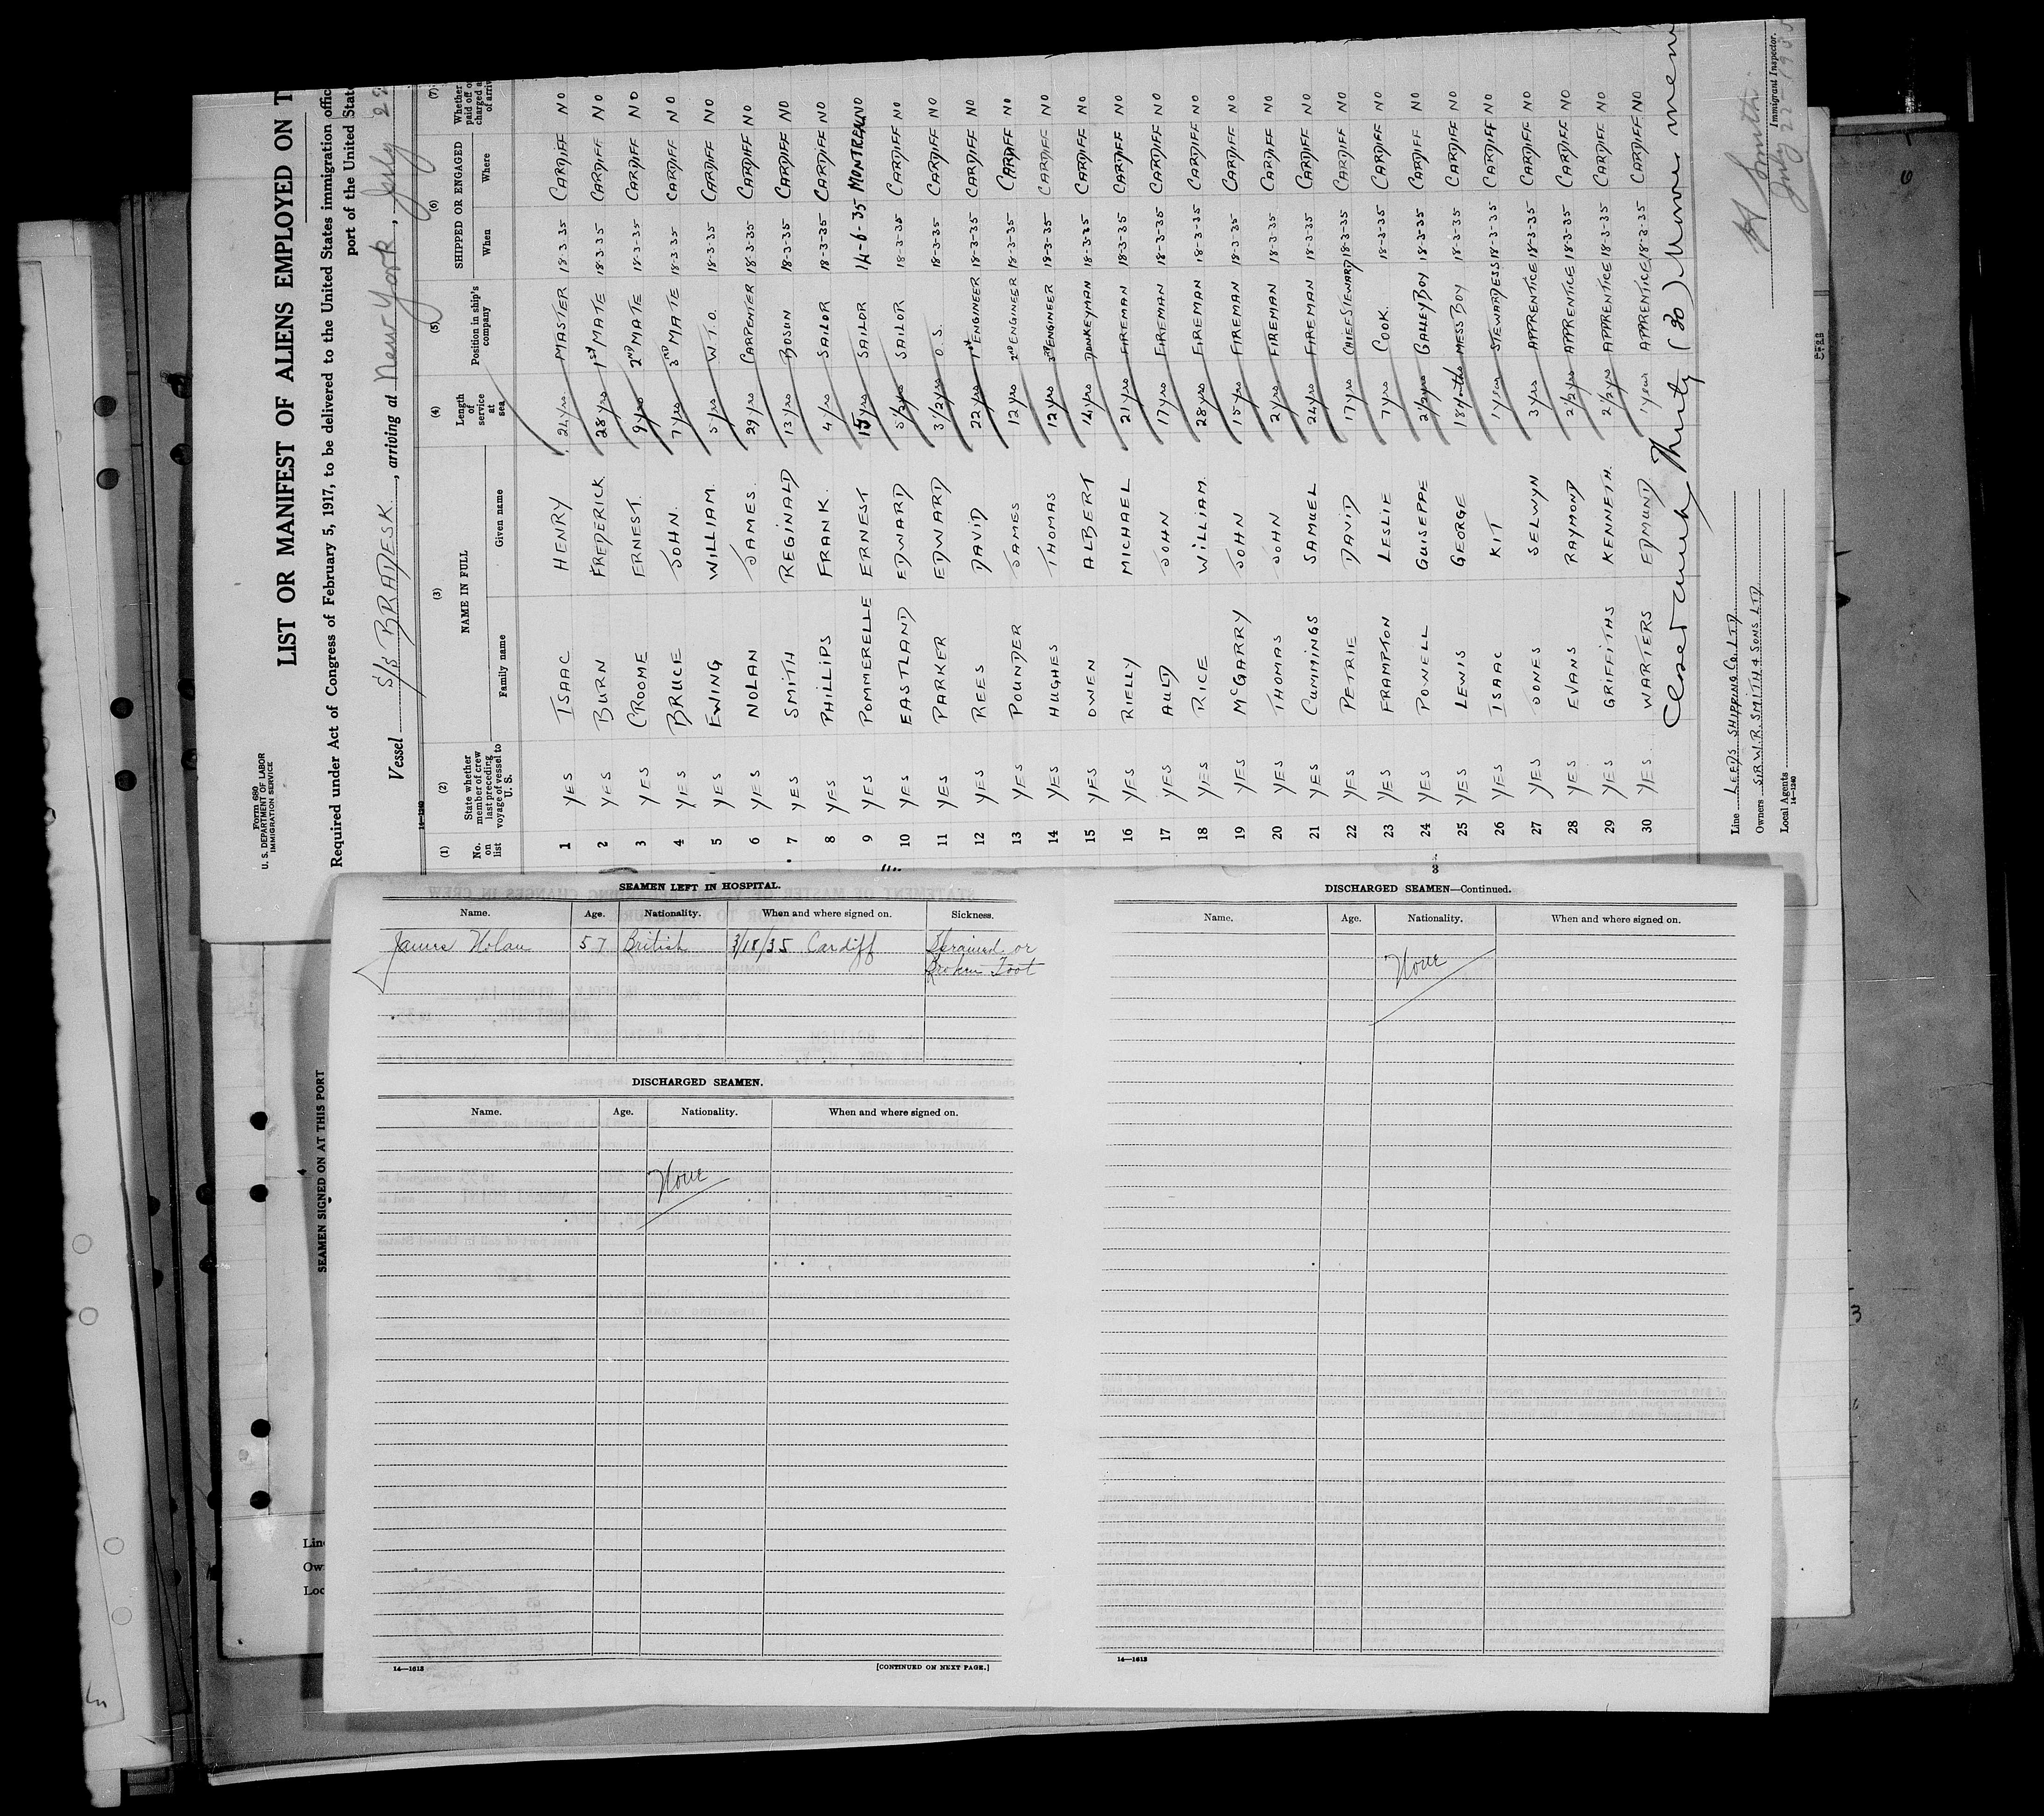 Form 680
U. S. DEPARTMENT OF LABOR
IMMIGRATION SERVICE
LIST OR MANIFEST OF ALIENS EMPLOYED ON T
Required under Act of Congress of February 5, 1917, to be delivered to the United States immigration offic
port of the United State
Vessel S/S BRADESK, arriving at New York, July 22
14-1240
(1) (2) (3) (4) (5) (6) (7)
No. on list State whether member of crew last preceding voyage of vessel to U. S. NAME IN FULL Family name Given name Length of service at sea Position in ship's company SHIPPED OR ENGAGED When Where Whether paid off o charged a of arriv
1 YES ISAAC HENRY 24 yrs MASTER 18-3-35 CARDIFF NO
2 YES BURN FREDERICK 28 yrs 1ST MATE 18-3-35 CARDIFF NO
3 YES CROOME ERNEST 9 yrs 2ND MATE 18-3-35 CARDIFF NO
4 YES BRUCE JOHN 7 yrs 3RD MATE 18-3-35 CARDIFF NO
5 YES EWING WILLIAM 5 yrs W.T.O. 18-3-35 CARDIFF NO
6 YES NOLAN JAMES 29 yrs CARPENTER 18-3-35 CARDIFF NO
7 YES SMITH REGINALD 13 yrs BOSUN 18-3-35 CARDIFF NO
8 YES PHILLIPS FRANK 4 yrs SAILOR 18-3-35 CARDIFF NO
9 YES POMMERELLE ERNEST 15 yrs SAILOR 14-6-35 MONTREAL NO
10 YES EASTLAND EDWARD 5 1/2 yrs SAILOR 18-3-35 CARDIFF NO
11 YES PARKER EDWARD 3 1/2 yrs O.S. 18-3-35 CARDIFF NO
12 YES REES DAVID 22 yrs 1ST ENGINEER 18-3-35 CARDIFF NO
13 YES POUNDER JAMES 12 yrs 2ND ENGINEER 18-3-35 CARDIFF NO
14 YES HUGHES THOMAS 12 yrs 3RD ENGINEER 18-3-35 CARDIFF NO
15 YES OWEN ALBERT 14 yrs DONKEYMAN 18-3-35 CARDIFF NO
16 YES RIELLY MICHAEL 21 yrs FIREMAN 18-3-35 CARDIFF NO
17 YES AULD JOHN 17 yrs FIREMAN 18-3-35 CARDIFF NO
18 YES RICE WILLIAM 28 yrs FIREMAN 18-3-35 CARDIFF NO
19 YES McGARRY JOHN 15 yrs FIREMAN 18-3-35 CARDIFF NO
20 YES THOMAS JOHN 2 yrs FIREMAN 18-3-35 CARDIFF NO
21 YES CUMMINGS SAMUEL 24 yrs FIREMAN 18-3-35 CARDIFF NO
22 YES PETRIE DAVID 17 yrs CHIEF STEWARD 18-3-35 CARDIFF NO
23 YES FRAMPTON LESLIE 7 yrs COOK 18-3-35 CARDIFF NO
24 YES POWELL GUISEPPE 2 1/2 yrs GALLEY BOY 18-3-35 CARDIFF NO
25 YES LEWIS GEORGE 18 months MESS BOY 18-3-35 CARDIFF NO
26 YES ISAAC KIT 1 year STEWARDESS 18-3-35 CARDIFF NO
27 YES JONES SELWYN 3 yrs APPRENTICE 18-3-35 CARDIFF NO
28 YES EVANS RAYMOND 2 1/2 yrs APPRENTICE 18-3-35 CARDIFF NO
29 YES GRIFFITHS KENNETH 2 1/2 yrs APPRENTICE 18-3-35 CARDIFF NO
30 YES WARTERS EDMUND 1 year APPRENTICE 18-3-35 CARDIFF NO
Closed Thirty (30)
Line LEEDS SHIPPING Co LTD
Owners SIR W.R. SMITH & SONS LTD
Local Agents
14-1240
Smith
July 22-1935
Immigrant Inspector.
SEAMEN LEFT IN HOSPITAL.
Name. Age. Nationality. When and where signed on. Sickness.
James Nolan 57 British 3/18/35 Cardiff Sprained or
Broken Foot
DISCHARGED SEAMEN.
Name. Age. Nationality. When and where signed on.
None
14—1613
[CONTINUED ON NEXT PAGE.]
3
DISCHARGED SEAMEN—Continued.
Name. Age. Nationality. When and where signed on.
None
14—1613
SEAMEN SIGNED ON AT THIS PORT
Line
Ow
Loc
6
3